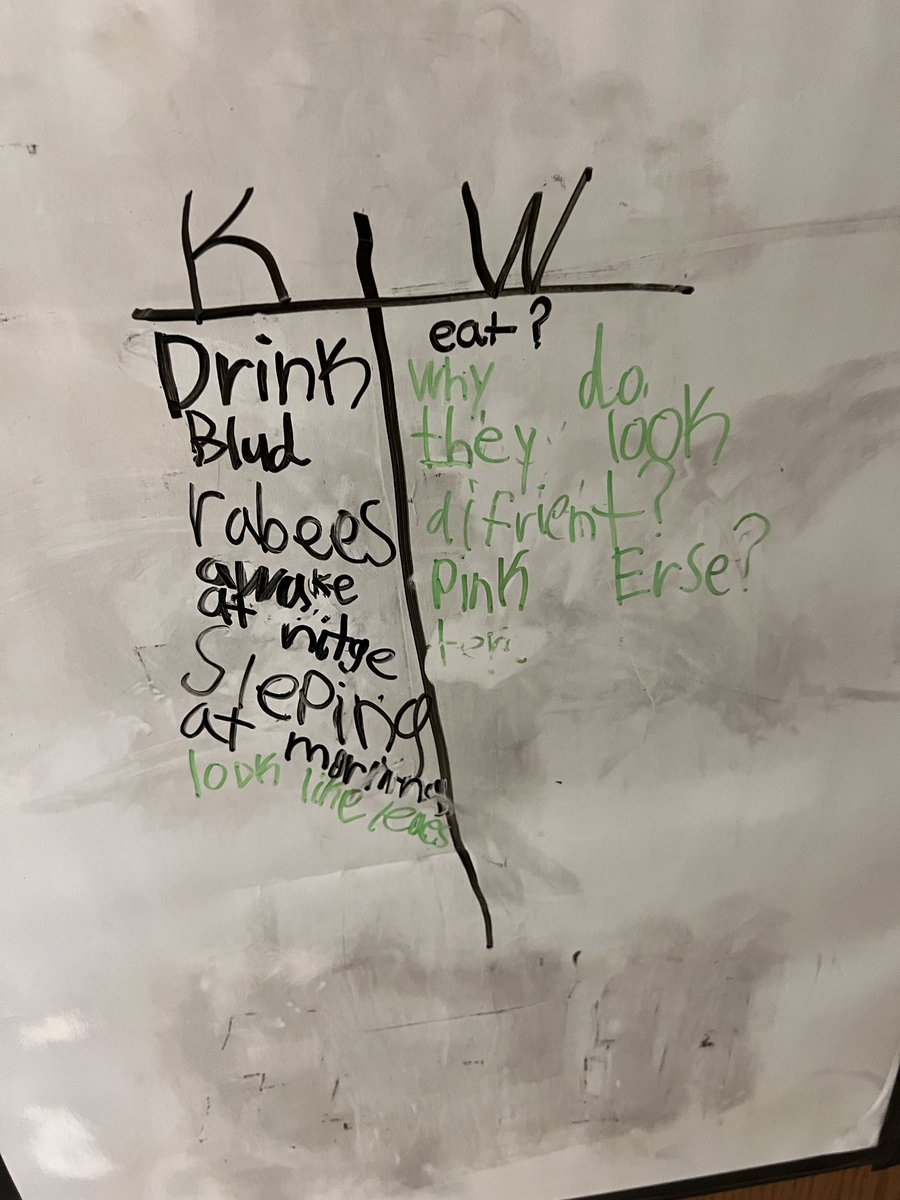 K W
Drink
Blud
rabees
awake
at nitge
Sleping
at morning
look like leaes
eat?
why do
they look
difrient?
Pink Erse?